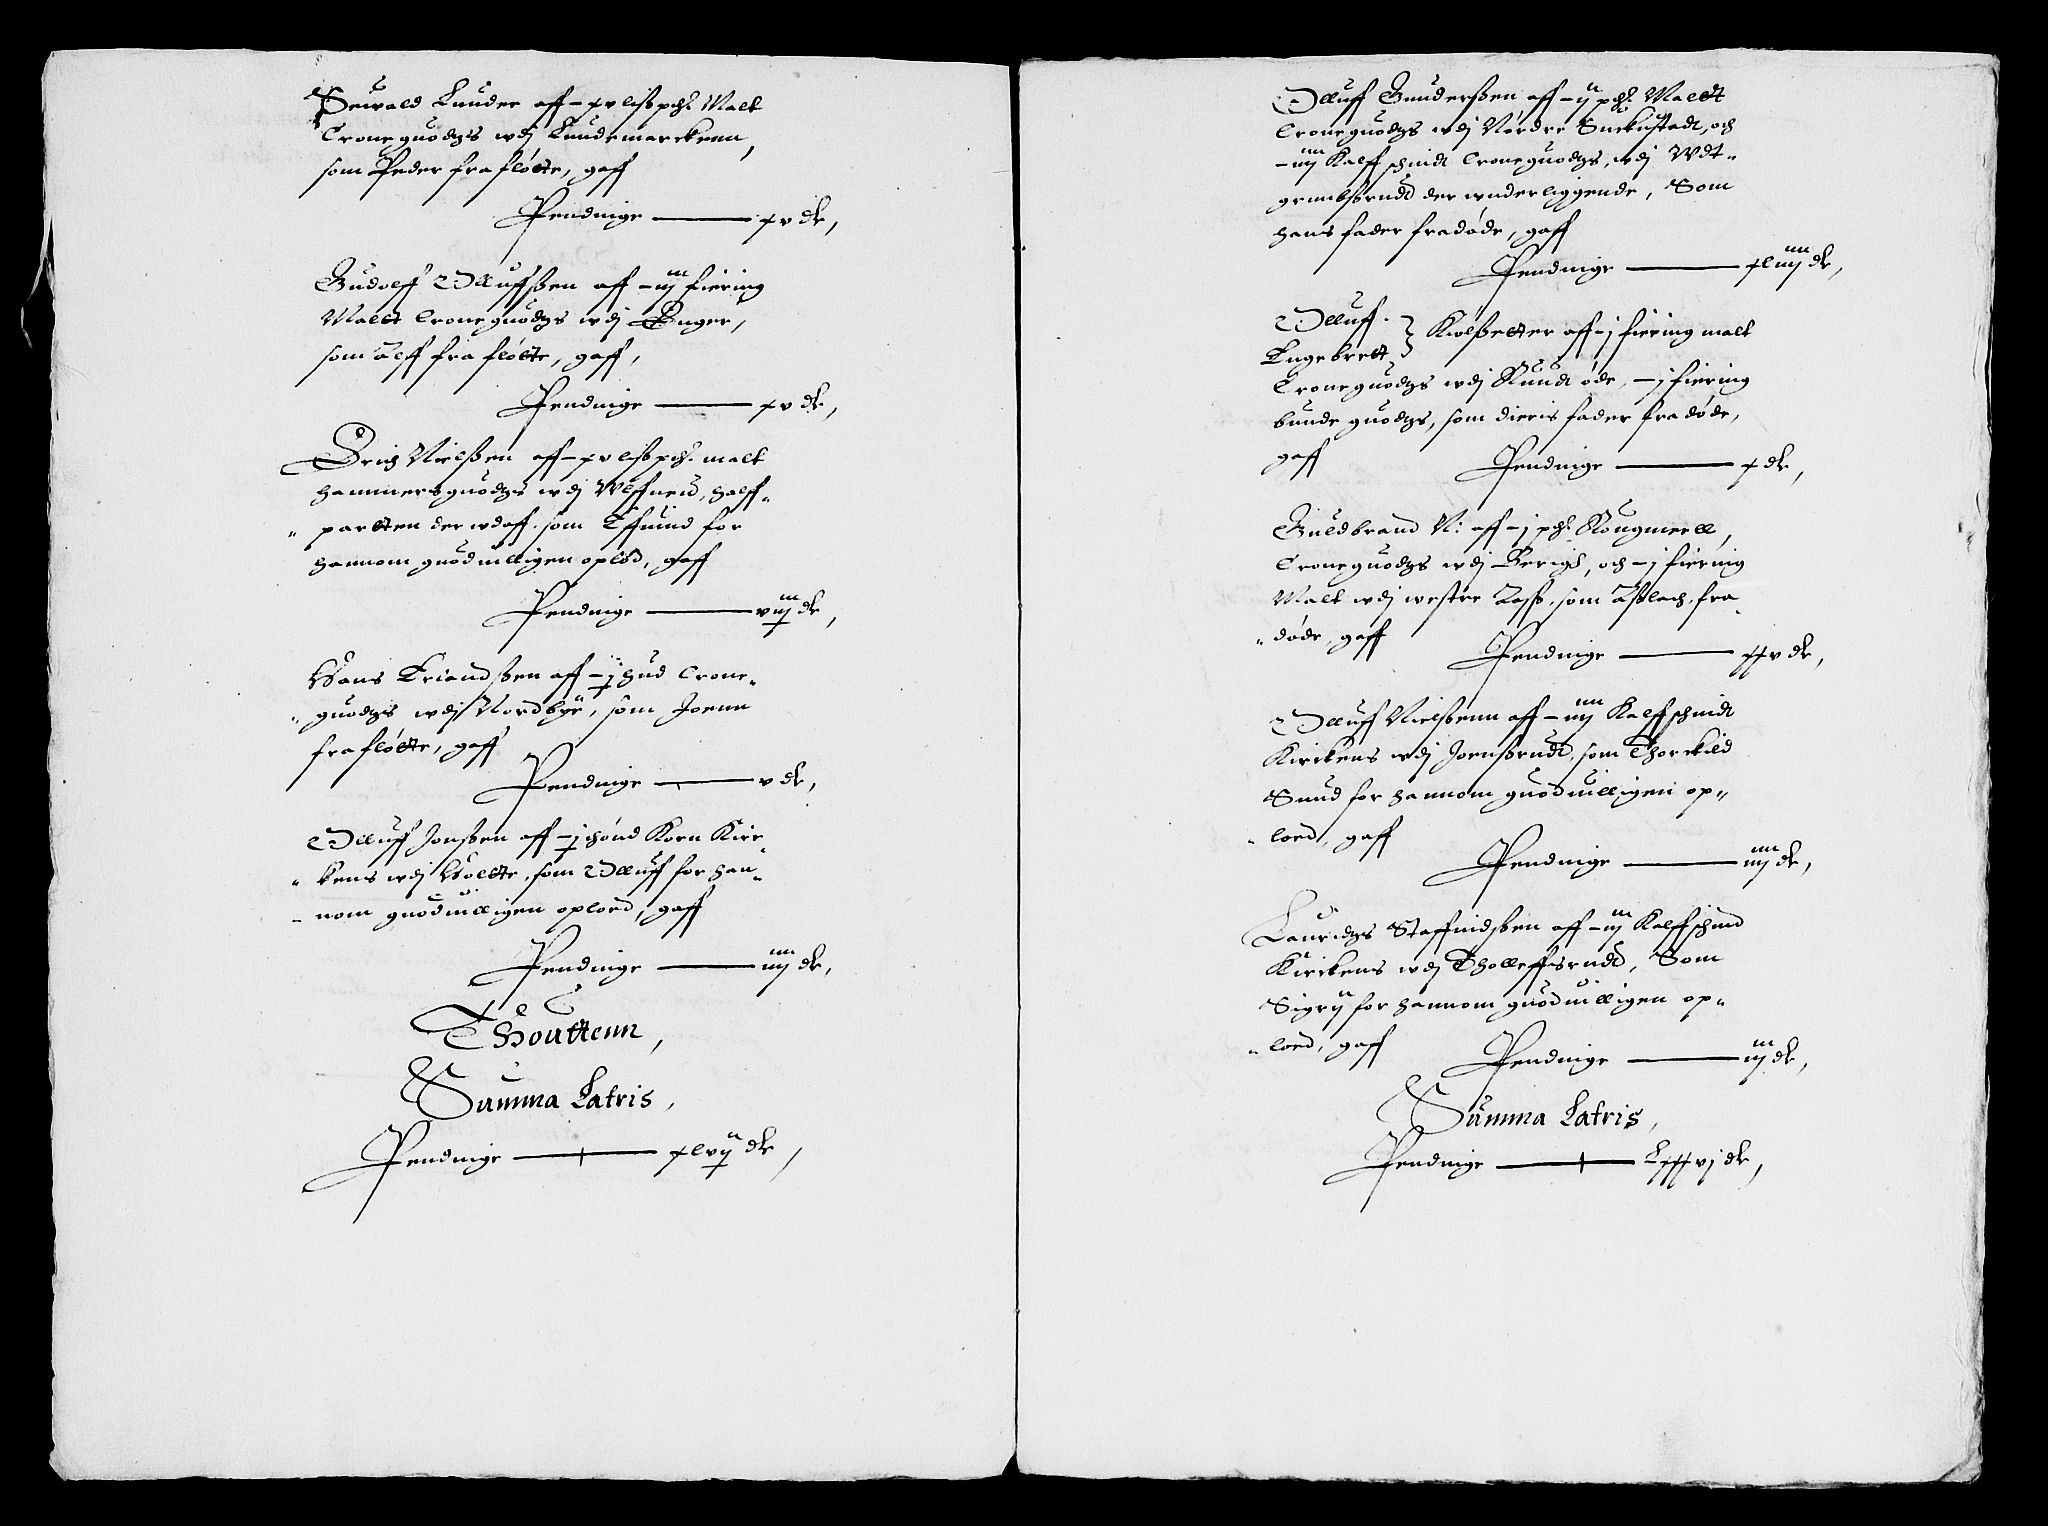 Seiwald Lunder aff - xv lißpd. Malt
Croneguodtzs wdj Lundemarckenn,
som Peder fra fløtte, gaff
Pendinge — xv dr,
Gudolff Olluffßen aff - iij fiering
Mallt Croneguodtzs wdj Enger,
som Alff fra fløtte, gaff,
Pendinge — xv dr.
Erich Nielßen aff - xv lißpd. malt
hammersguodtzs wdj Ulffneid, halff-
partten der wdaff, som Effuind for
hannom guoduilligen oplod, gaff
Pendinge — viij dr,
Hans Friandßen aff - j hud Crone-
guodtzs wdj Nordbye, som Joenn
fra fløtte, gaff
Pendinge — v dr,
Olluff Jonßen aff - j hønd Korn Kir-
kens wdj Holtte, som Olluff for han-
nom guoduilligen oplod, gaff
Pendinge — iiij dr,
Thouttenn,
Summa Latris,
Pendinge — xlvij dr,
Olluff Gunderßen aff - ij pd. Malltt
Croneguodtzs wdj Nördre Suckustadt, och
- iiij Kalffschindt Croneguodtzs, wdj Wdt-
grimbßrudt der wnderliggende, Som
hans fader fradøde, gaff
Pendinge — xliiij dr,
Olluff.
Engebrett } Kiolßetter aff - j fiering malt
Croneguodtzs wdj Ruud øde, - j fiering
bunde guodtzs, som dieris fader fradøde,
gaff
Pendinge — x dr,
Guldbrand N: aff - j pd. Rougmeell,
Croneguodtzs wdj Berigh, och - j fiering
Malt wdj westre Aaß, som Aßlach, fra-
døde, gaff
Pendinge — xxv dr,
Olluff Nielßenn aff - iiij Kalffschindt
Kirckens wdj Joenßrudt, som Thorckild
Suud for hannom guoduilligen op-
loed, gaff
Pendinge — iiij dr,
Lauridtzs Staffindßen aff - iij Kalffschind
Kirckens wdj Tholleffsrudt, Som
Sigrij for hannom guoduilligen op-
loed, gaff
Pendinge — iij dr,
Summa Latris,
Pendinge — Lxxxvj dr,